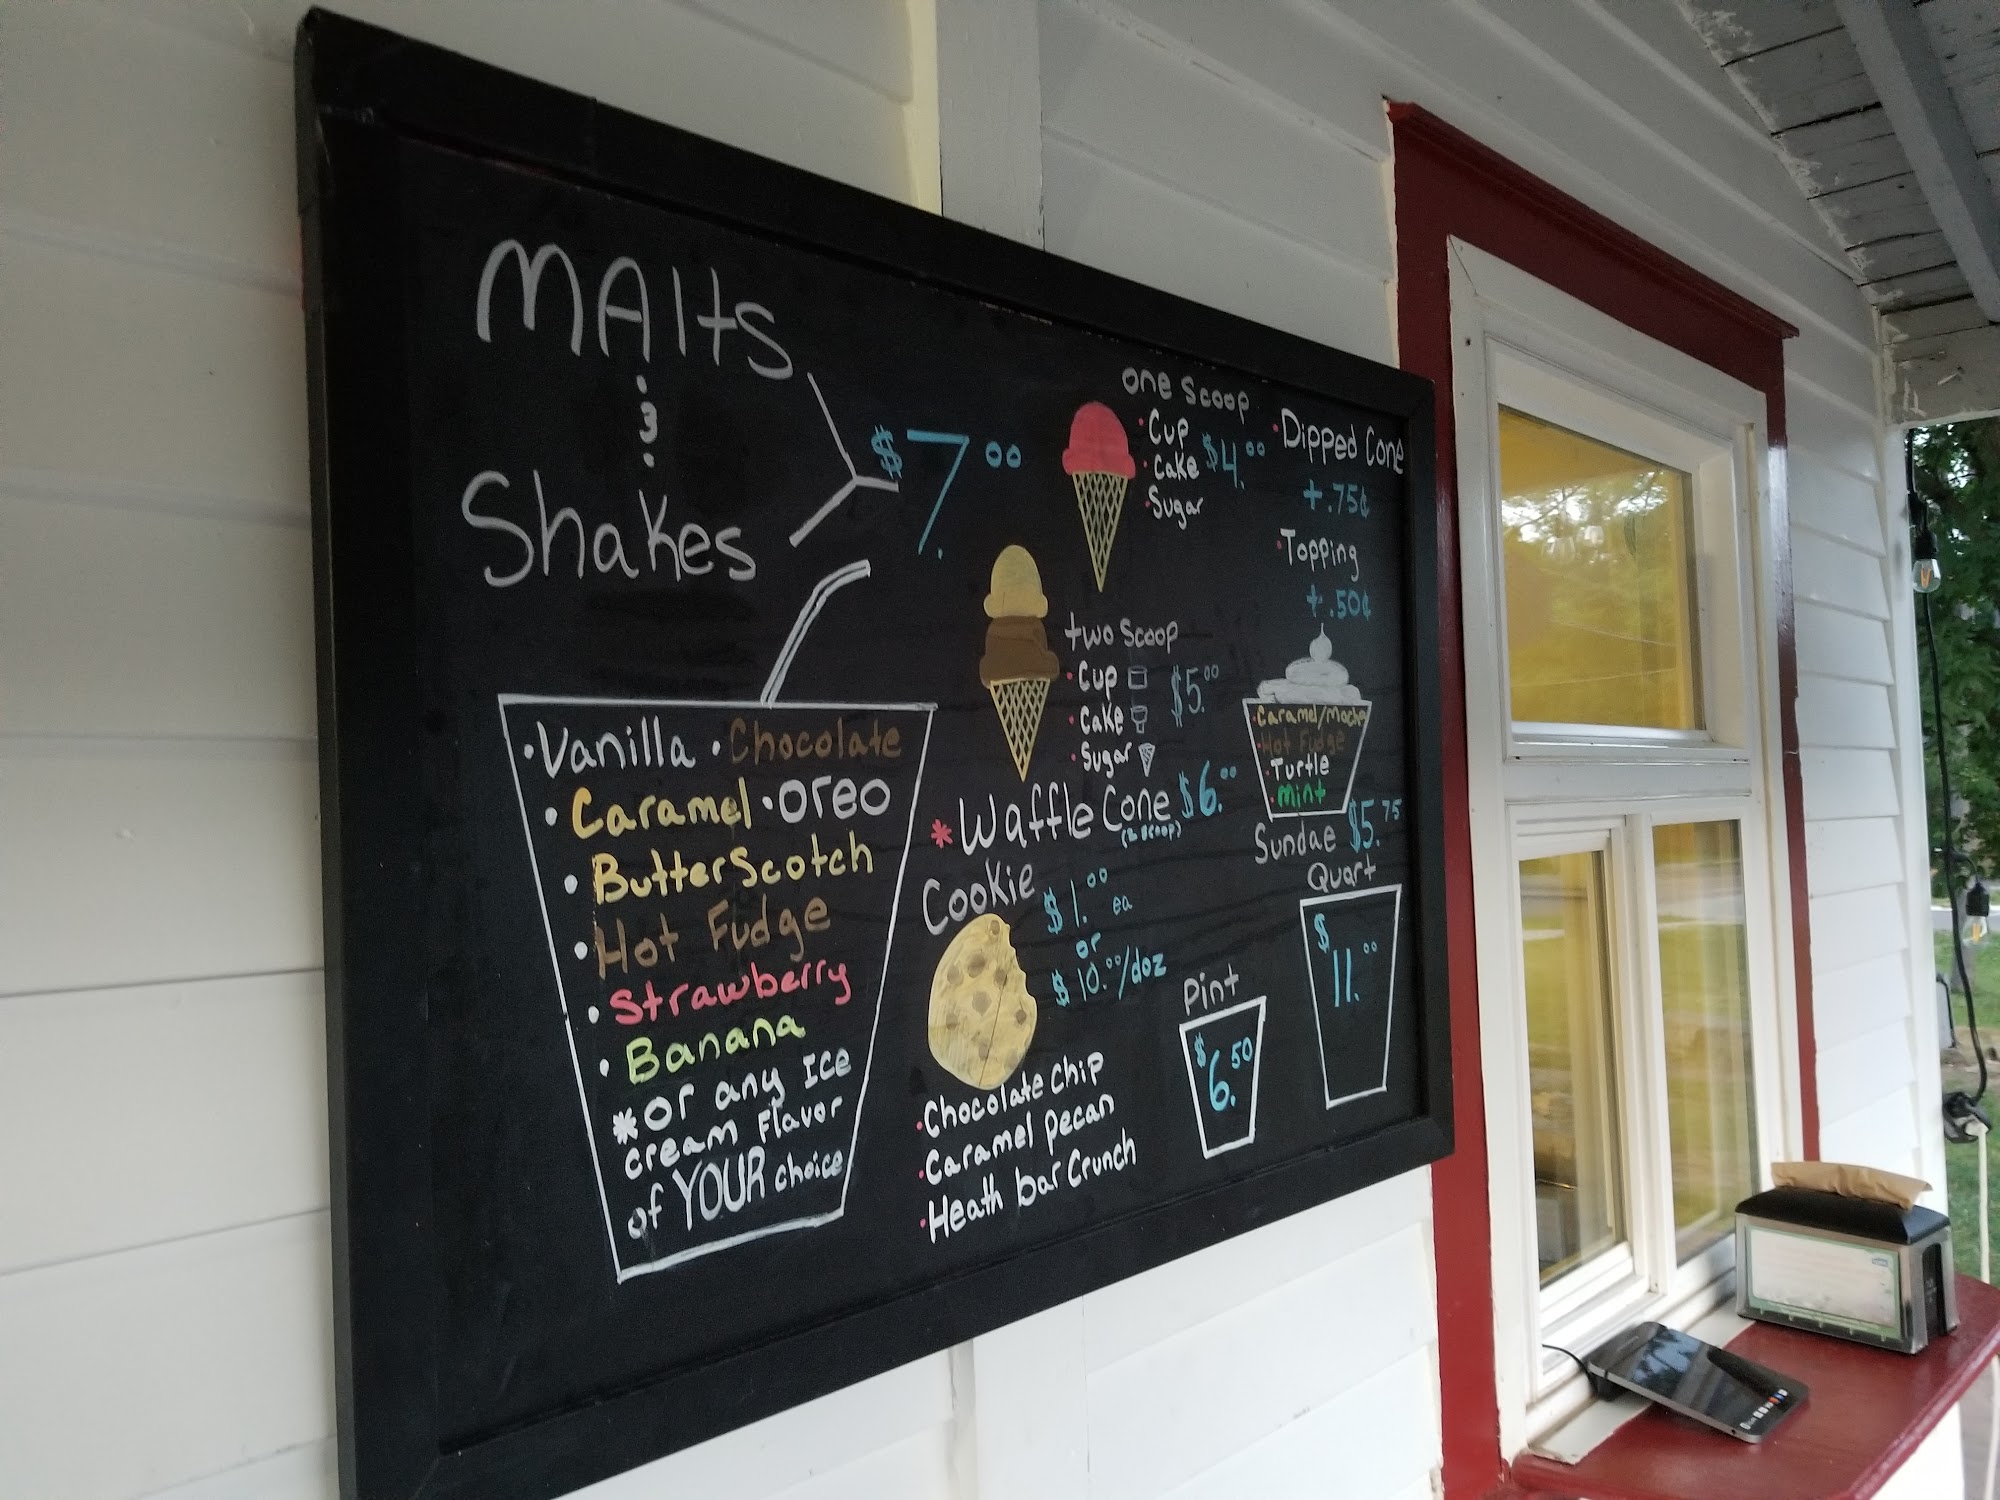 MAlts
&
Shakes
$7.00
• Vanilla • Chocolate
• Caramel • Oreo
• ButterScotch
• Hot Fudge
• Strawberry
• Banana
*or any Ice
cream Flavor
of YOUR choice
one scoop
• Cup
• Cake $4.00
• Sugar
two scoop
• Cup $5.00
• Cake
• Sugar
*Waffle Cone $6.00
(2 scoop)
Cookie
$1.00 ea
or
$10.00/doz
• Chocolate Chip
• Caramel pecan
• Heath bar Crunch
• Dipped Cone
+ .75¢
• Topping
+ .50¢
• Caramel/Mocha
• Hot Fudge
• Turtle
• Mint
Sundae $5.75
Quart
$11.00
Pint
$6.50